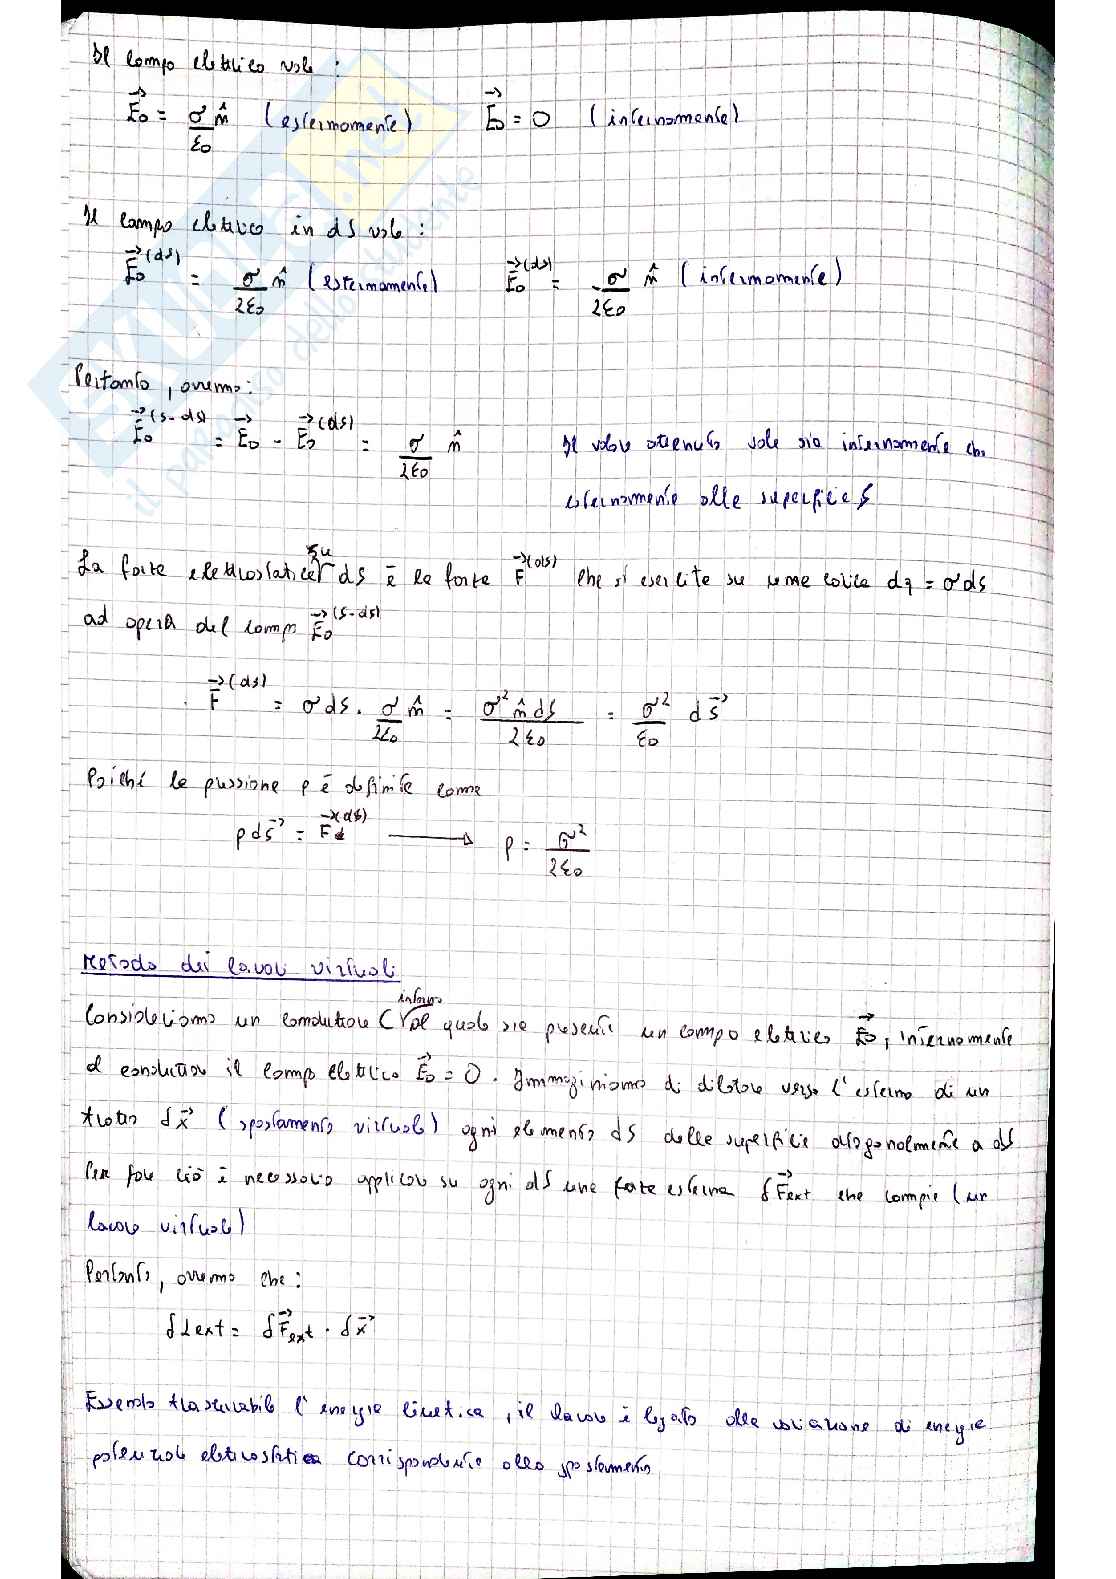 Il campo elettrico vale :
E⃗₀ = σ/ε₀ n̂ (esternamente)   E⃗₀ = 0 (internamente)
Il campo elettrico in dS vale :
E⃗₀^(dS) = σ/2ε₀ n̂ (esternamente)   E⃗₀^(dS) = -σ/2ε₀ n̂ (internamente)
Pertanto, avremo:
E⃗₀^(S-dS) = E⃗₀ - E⃗₀^(dS) = σ/2ε₀ n̂   Il valore ottenuto vale sia internamente che
esternamente alla superficie S
La forza elettrostatica su dS è la forza F⃗^(dS) che si esercita su una carica dq = σdS
ad opera del campo E⃗₀^(S-dS)
F⃗^(dS) = σdS · σ/2ε₀ n̂ = σ² n̂ dS/2ε₀ = σ²/ε₀ dS⃗
Poiché la pressione p è definita come
p dS⃗ = F⃗^(dS) → p = σ²/2ε₀
Metodo dei lavori virtuali
Consideriamo un conduttore C intorno al quale sia presente un campo elettrico E⃗₀, internamente
al conduttore il campo elettrico E⃗₀ = 0. Immaginiamo di dilatare verso l'esterno di un
tratto δx⃗ (spostamento virtuale) ogni elemento dS della superficie ortogonalmente a dS
Per fare ciò è necessario applicare su ogni dS una forza esterna δF⃗ext che compie (un
lavoro virtuale)
Pertanto, avremo che :
δLext = δF⃗ext · δx⃗
Essendo trascurabile l'energia cinetica, il lavoro è legato alla variazione di energia
potenziale elettrostatica corrispondente allo spostamento
il paradiso dello studente